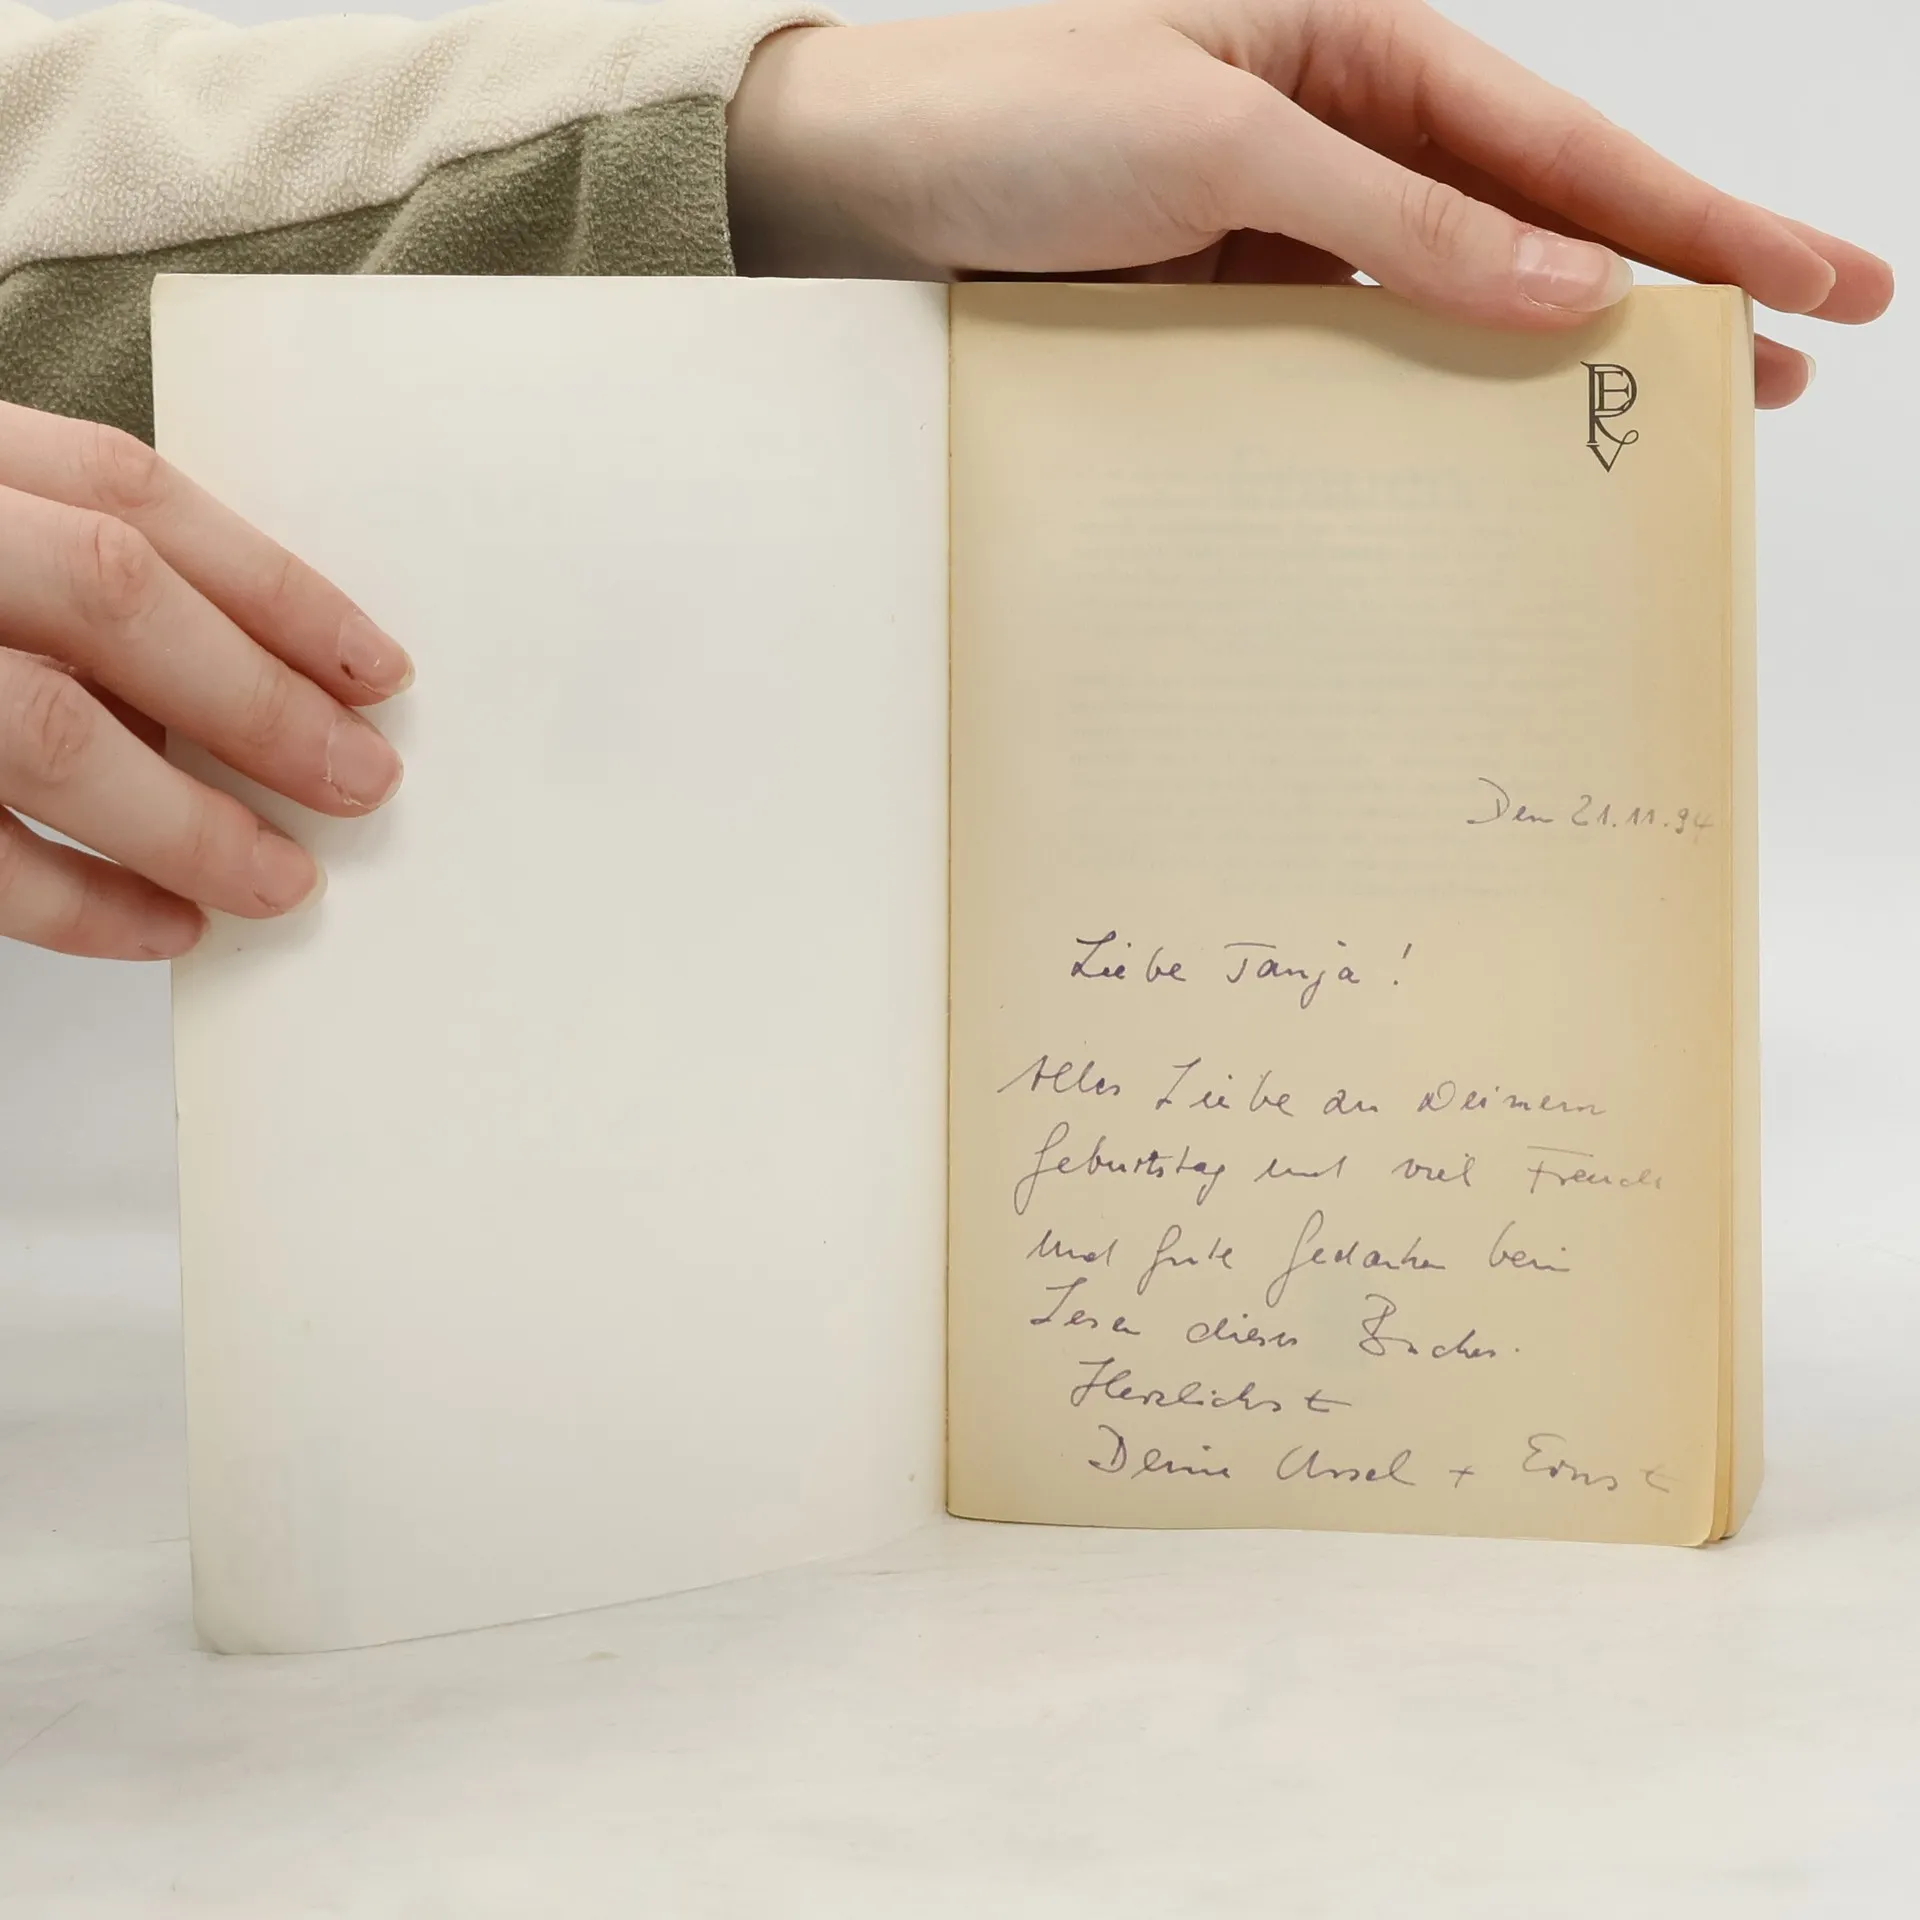 PERV
Den 21.11.94
Liebe Tanja!
Alles Liebe zu Deinem
Geburtstag und viel Freude
und gute Gedanken beim
Lesen dieses Buches.
Herzlichst
Deine + Ernst